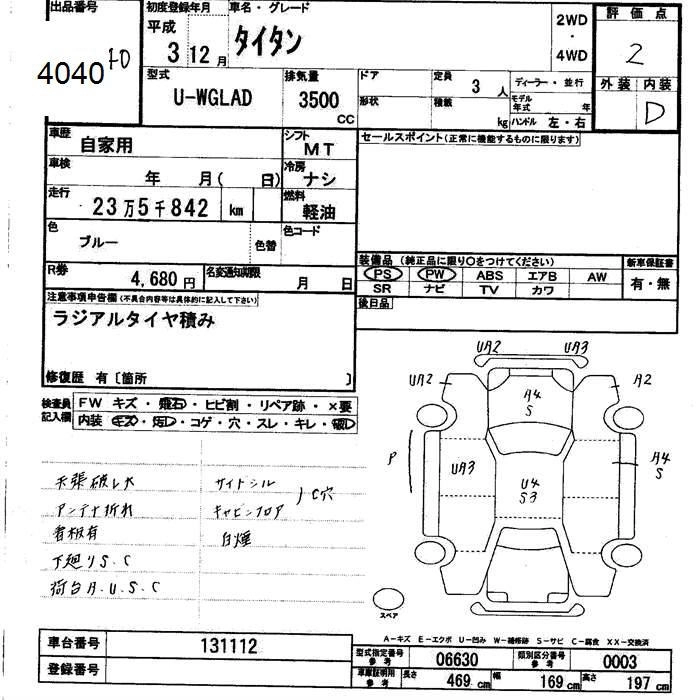 出品番号
4040 FD
初度登録年月 車名・グレード 2WD ・ 4WD 評価点
平成 3 12月 タイタン 2
型式 排気量 ドア 定員 3 人 ディーラー・並行 外装 内装
U-WGLAD 3500 CC 形状 積載 kg モデル年式 年 D
ハンドル 左・右
車歴 自家用 シフト MT セールスポイント(正常に機能するものに限ります)
車検 年 月( 日) 冷房 ナシ
走行 23万5千842 km 燃料 軽油
色 ブルー 色替 色コード
装備品(純正品に限り○をつけてください) 新車保証書
R券 4,680円 名変通知期限 月 日 PS PW ABS エアB AW 有・無
SR ナビ TV カワ
注意事項申告欄(不具合内容等は具体的に記入して下さい) 後日品
ラジアルタイヤ積み
修復歴 有〔箇所 〕
検査員記入欄 FW キズ・飛石・ヒビ割・リペア跡・×要
内装 キズ・汚レ・コゲ・穴・スレ・キレ・破レ
UA2 UA3
UA2 A4 S A2
P UA3 U4 S3 A4 S
天張破レ大 サイドシル
アンテナ折れ キャビンフロア )C穴
看板有 白煙
下廻りS.C
荷台A.U.S.C
スペア
A-キズ E-エクボ U-凹み W-補修跡 S-サビ C-腐食 XX-交換済
車台番号 131112 型式指定番号 参考 06630 類別区分番号 参考 0003
登録番号 車庫証明用 参考 長さ 469 cm 幅 169 cm 高さ 197 cm